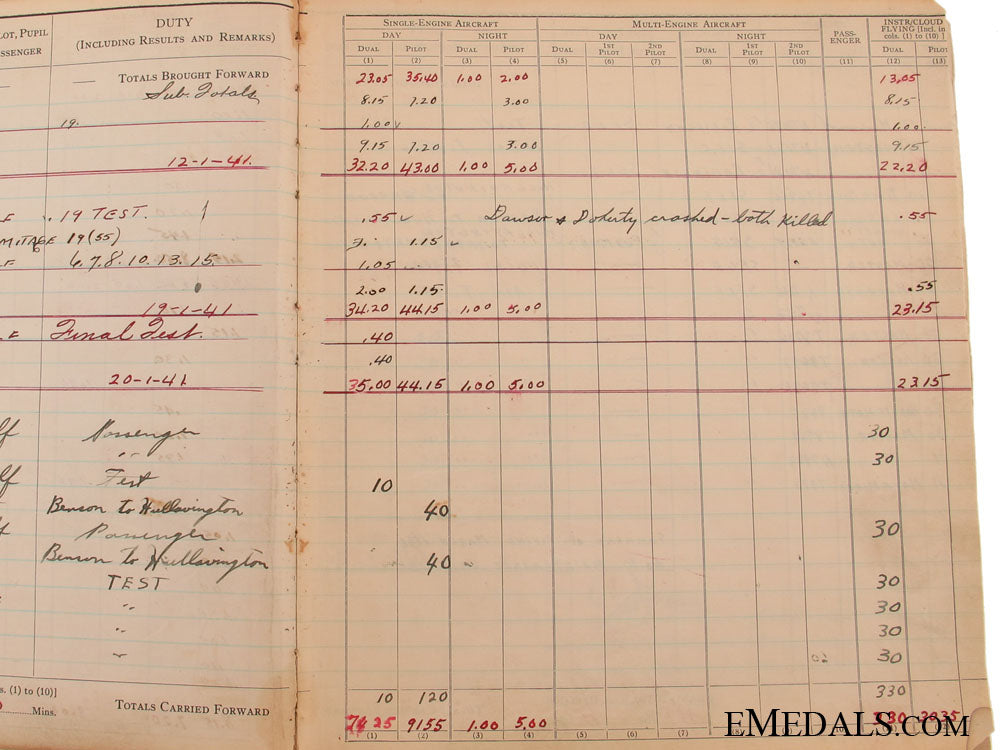 LOT, PUPIL
SSENGER
DUTY
(INCLUDING RESULTS AND REMARKS)
SINGLE-ENGINE AIRCRAFT MULTI-ENGINE AIRCRAFT PASS-ENGER INSTR/CLOUD FLYING [Incl. in cols. (1) to (10) ]
DAY NIGHT DAY NIGHT
DUAL PILOT DUAL PILOT DUAL 1ST PILOT 2ND PILOT DUAL 1ST PILOT 2ND PILOT DUAL PILOT
(1) (2) (3) (4) (5) (6) (7) (8) (9) (10) (11) (12) (13)
— TOTALS BROUGHT FORWARD 23.05 35.40 1.00 2.00 13.05
Sub. Totals 8.15 7.20 3.00 8.15
19. 1.00 1.00
9.15 7.20 3.00 9.15
12-1-41. 32.20 43.00 1.00 5.00 22.20
19 TEST. .55 Dawson & Doherty crashed - both Killed .55
MITAGE 19 (55) 1.15
6.7.8.10.13.15. 1.05
2.00 1.15 .55
19-1-41 34.20 44.15 1.00 5.00 23.15
Final Test. .40
.40
20-1-41 35.00 44.15 1.00 5.00 23.15
Passenger 30
" 30
Test 10
Benson to Hullavington 40
Passenger 30
Benson to Hullavington 40
TEST 30
" 30
" 30
" 30
s. (1) to (10)] 10 120 330
Mins. TOTALS CARRIED FORWARD 9155 1.00 5.00
(1) (2) (3) (4) (5) (6) (7)
EMEDALS.COM